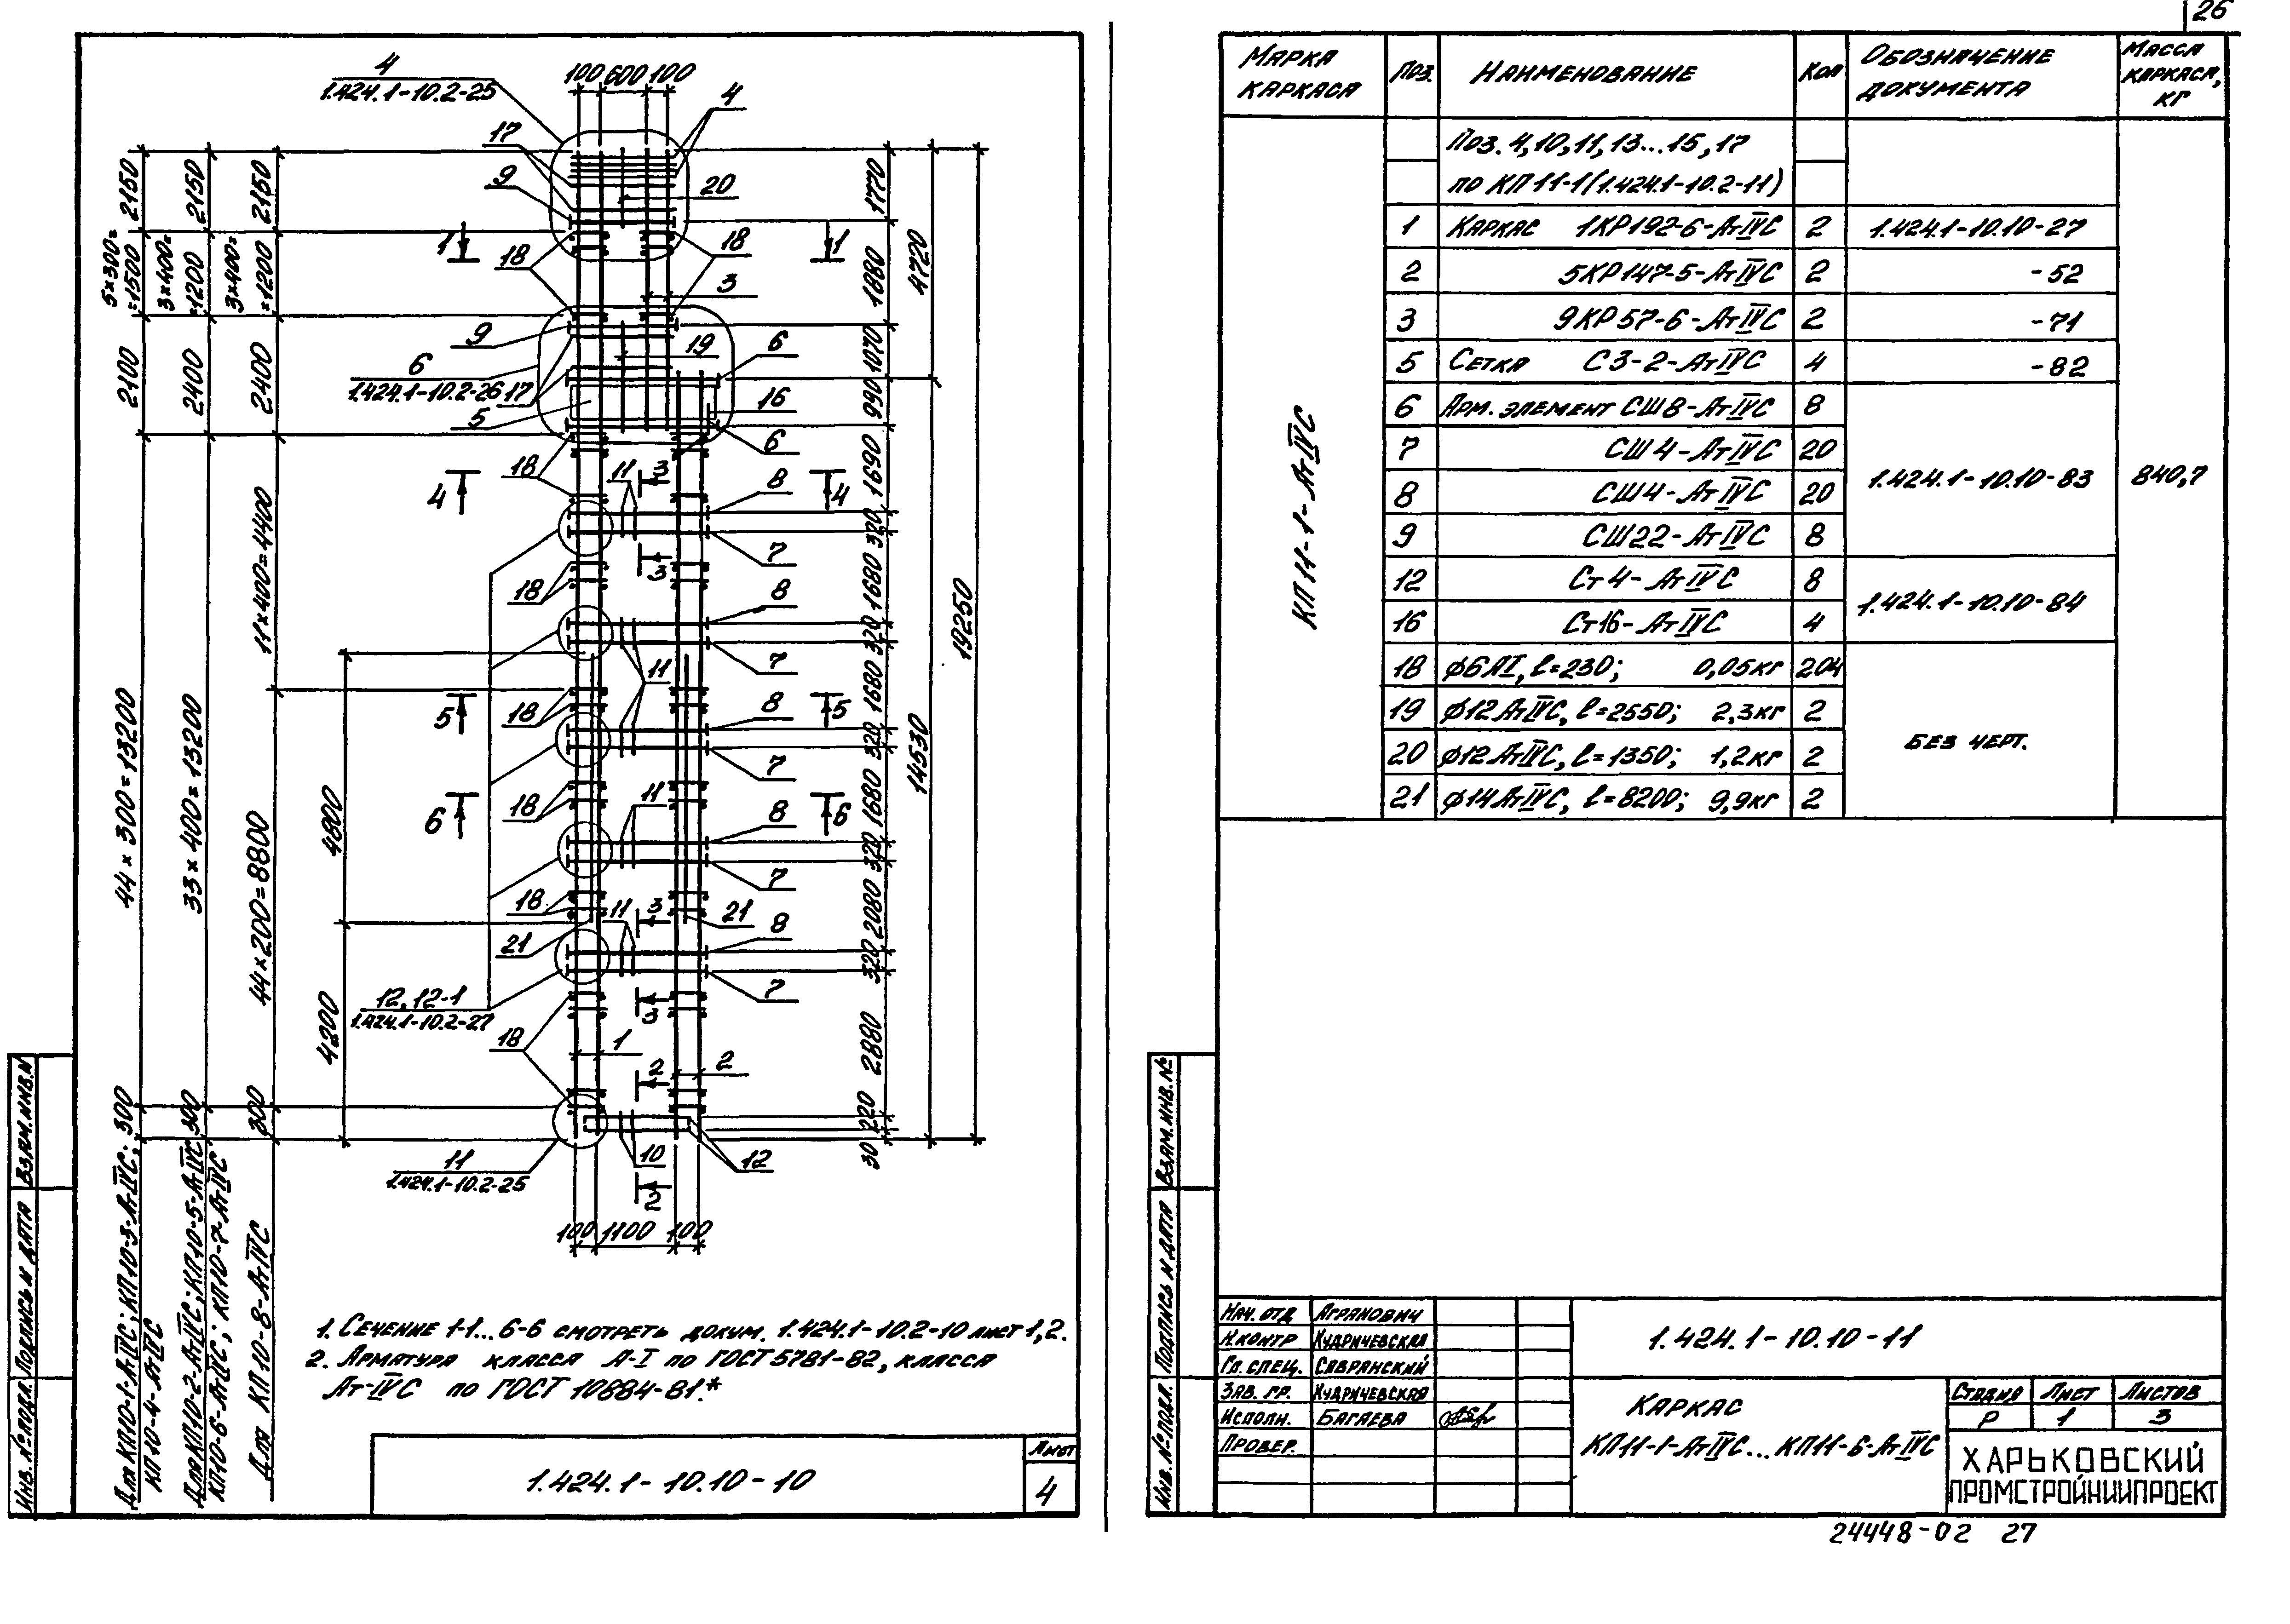 26
4
1.424.1-10.2-25
100 600 100
4
17
9
20
1
1
18
18
3
9
19
6
6
1.424.1-10.2-26
17
16
5
6
18
11
3
8
4
4
7
3
18
8
11
7
5
5
18
8
7
11
6
6
18
8
7
18
11
3
21
8
21
7
12, 12-1
1.424.1-10.2-27
3
18
1
2
2
10
12
11
1.424.1-10.2-25
2
100 1100 100
2150
2150
2150
5×300=
=1500
3×400=
=1200
3×400=
=1200
2100
2400
2400
11×400=4400
44×300=13200
33×400=13200
44×200=8800
4800
4200
300
300
300
1770
1880
1070
990
1690
320
1680
320
1680
320
1680
320
2080
320
2880
220
30
4720
14530
19250
Для КП10-1-АтIVС; КП10-3-АтIVС;
КП10-4-АтIVС
Для КП10-2-АтIVС; КП10-5-АтIVС
КП10-6-АтIVС; КП10-7-АтIVС
Для КП10-8-АтIVС
1. Сечение 1-1...6-6 смотреть докум. 1.424.1-10.2-10 лист 1,2.
2. Арматура класса А-I по ГОСТ 5781-82, класса
Ат-IVС по ГОСТ 10884-81.*
1.424.1-10.10-10
Лист
4
Инв. № подл. Подпись и дата Взам. инв. №
Марка каркаса Поз. Наименование Кол Обозначение документа Масса каркаса, кг
КП11-1-АтIVС
Поз. 4,10,11,13...15,17
по КП11-1 (1.424.1-10.2-11)
1 Каркас 1КР192-6-АтIVС 2 1.424.1-10.10-27
2 5КР147-5-АтIVС 2 -52
3 9КР57-6-АтIVС 2 -71
5 Сетка С3-2-АтIVС 4 -82
6 Арм. элемент СШ8-АтIVС 8
7 СШ4-АтIVС 20
8 СШ4-АтIVС 20 1.424.1-10.10-83 840,7
9 СШ22-АтIVС 8
12 Ст4-АтIVС 8
1.424.1-10.10-84
16 Ст16-АтIVС 4
18 ϕ6АI, ℓ=230; 0,05кг 204
19 ϕ12АтIVС, ℓ=2550; 2,3кг 2
Без черт.
20 ϕ12АтIVС, ℓ=1350; 1,2кг 2
21 ϕ14АтIVС, ℓ=8200; 9,9кг 2
Инв. № подл. Подпись и дата Взам. инв. №
Нач. отд Агранович
Н.контр Кудричевская
Гл. спец. Савранский
Зав. гр. Кудричевская
Исполн. Багаева
Провер.
1.424.1-10.10-11
Каркас
КП11-1-АтIVС...КП11-6-АтIVС
Стадия Лист Листов
Р 1 3
ХАРЬКОВСКИЙ
ПРОМСТРОЙНИИПРОЕКТ
24448-02 27